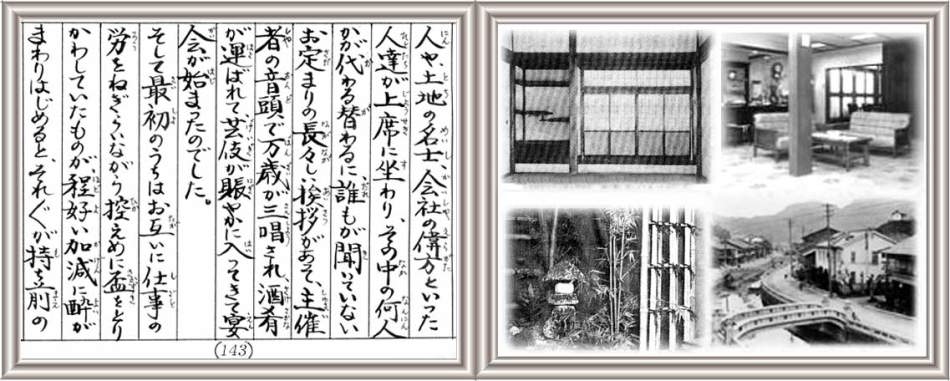 人や、土地の名士、会社の偉方といった
人達が上席に坐わり、その中の何人
かが代わる替わるに誰もが聞いていない
お定まりの長々しい挨拶があって、主催
者の音頭で万歳が三唱され、酒肴
が運ばれて芸伎が賑やかに入ってきて宴
会が始まったのでした。
そして最初のうちはお互いに仕事の
労をねぎらいながら控えめに盃をとり
かわしていたものが、程好い加減に酔が
まわりはじめると、それぞれが持ち前の
(143)